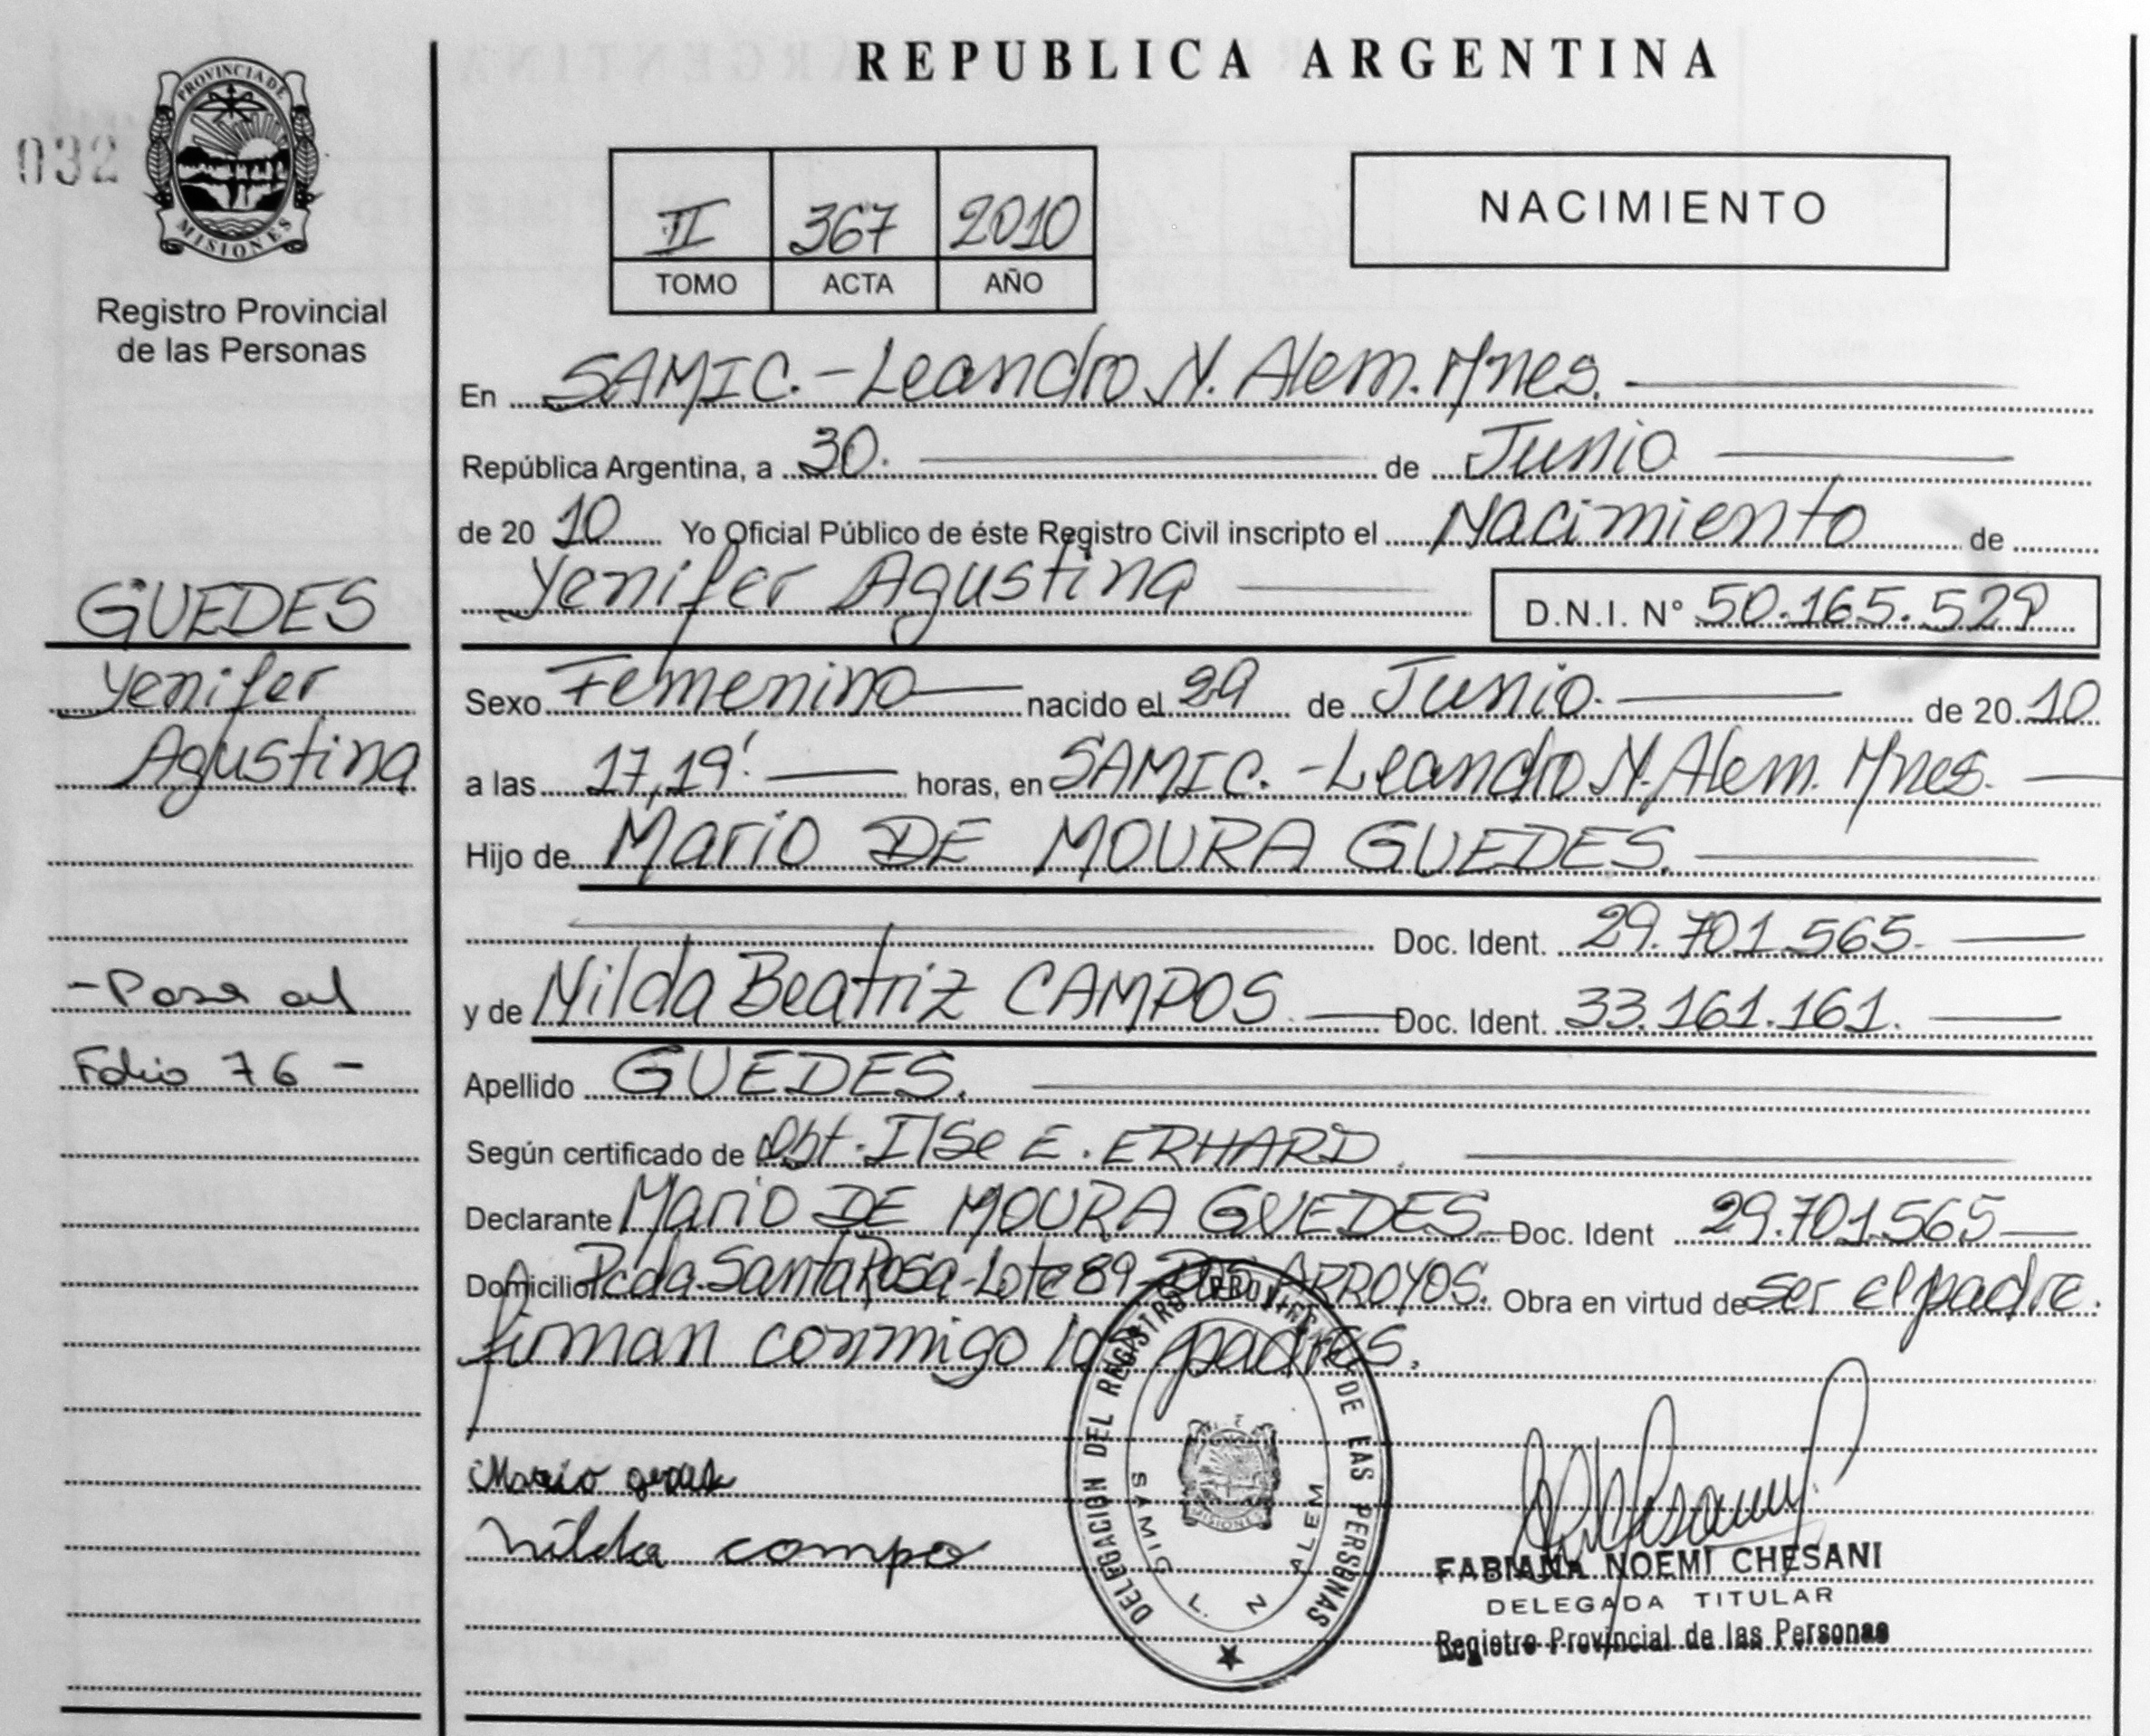 REPUBLICA ARGENTINA
PROVINCIA DE
MISIONES
032
Registro Provincial
de las Personas
II 367 2010
TOMO ACTA AÑO
NACIMIENTO
En SAMIC.-Leandro N. Alem. Mnes.
República Argentina, a 30. de Junio
de 20 10 Yo Oficial Público de éste Registro Civil inscripto el Nacimiento de
Yenifer Agustina D.N.I. N° 50.165.529
GUEDES
Yenifer
Agustina
Sexo Femenino nacido el 29 de Junio. de 20 10
a las 17,19' horas, en SAMIC.-Leandro N. Alem. Mnes.
Hijo de Mario DE MOURA GUEDES.
Doc. Ident. 29.701.565.
y de Nilda Beatriz CAMPOS. Doc. Ident. 33.161.161.
-Pasa al
Folio 76 -
Apellido GUEDES.
Según certificado de Obt. Ilse E. ERHARD.
Declarante Mario DE MOURA GUEDES. Doc. Ident 29.701.565
Domicilio Pcda. Santa Rosa-Lote 89-DOS ARROYOS. Obra en virtud de ser el padre.
firman conmigo los padres.
Mario
Nilda campo
DELEGACION DEL REGISTRO PROVINCIAL DE LAS PERSONAS
SAMIC L. N ALEM
MISIONES
FABIANA NOEMI CHESANI
DELEGADA TITULAR
Registro Provincial de las Personas